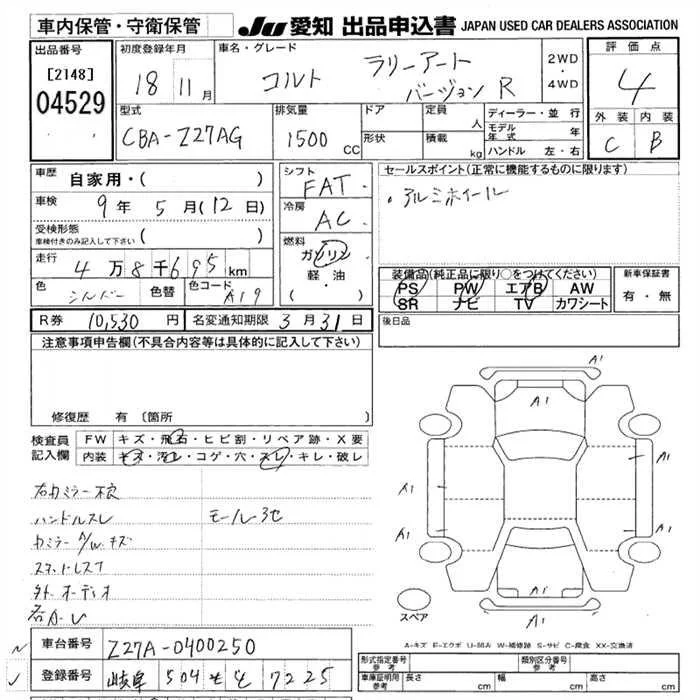 車内保管・守衛保管
JU 愛知 出品申込書 JAPAN USED CAR DEALERS ASSOCIATION
出品番号
[2148]
04529
初度登録年月
18 11月
車名・グレード
コルト ラリーアート
バージョン R
2WD
・
4WD
評価点
4
外装 内装
C B
型式
CBA-Z27AG
排気量
1500 CC
ドア
形状
定員 人
積載 kg
ディーラー・並行
モデル年式 年
ハンドル 左・右
車歴 自家用・( )
車検 9年 5月(12日)
受検形態
車検付きのみ記入して下さい ( )
走行 4万8千695km
色 シルバー 色替 色コード A19
シフト
FAT
冷房
AC
燃料
ガソリン
軽油
( ・ )
セールスポイント(正常に機能するものに限ります)
・アルミホイール
装備品(純正品に限り○をつけてください)
PS PW エアB AW
SR ナビ TV カワシート
新車保証書
有・無
R券 10,530円 名変通知期限 3月31日
後日品
注意事項申告欄(不具合内容等は具体的に記入して下さい)
修復歴 有 〔箇所
検査員
記入欄
FW キズ・飛石・ヒビ割・リペア跡・X要
内装 キズ・汚レ・コゲ・穴・スレ・キレ・破レ
右カミラー不良
ハンドルスレ モール3セ
カミラーA/W キズ
外オーディオ
A1
A1
A1 A1
A1 A1
A1
A1
スペア
A-キズ E-エクボ U-凹み W-補修跡 S-サビ C-腐食 XX-交換済
車台番号 Z27A-0400250
登録番号 岐阜 504 も 7225
形式指定番号
参考
類別区分番号
参考
車庫証明用
参考
長さ cm 幅 cm 高さ cm